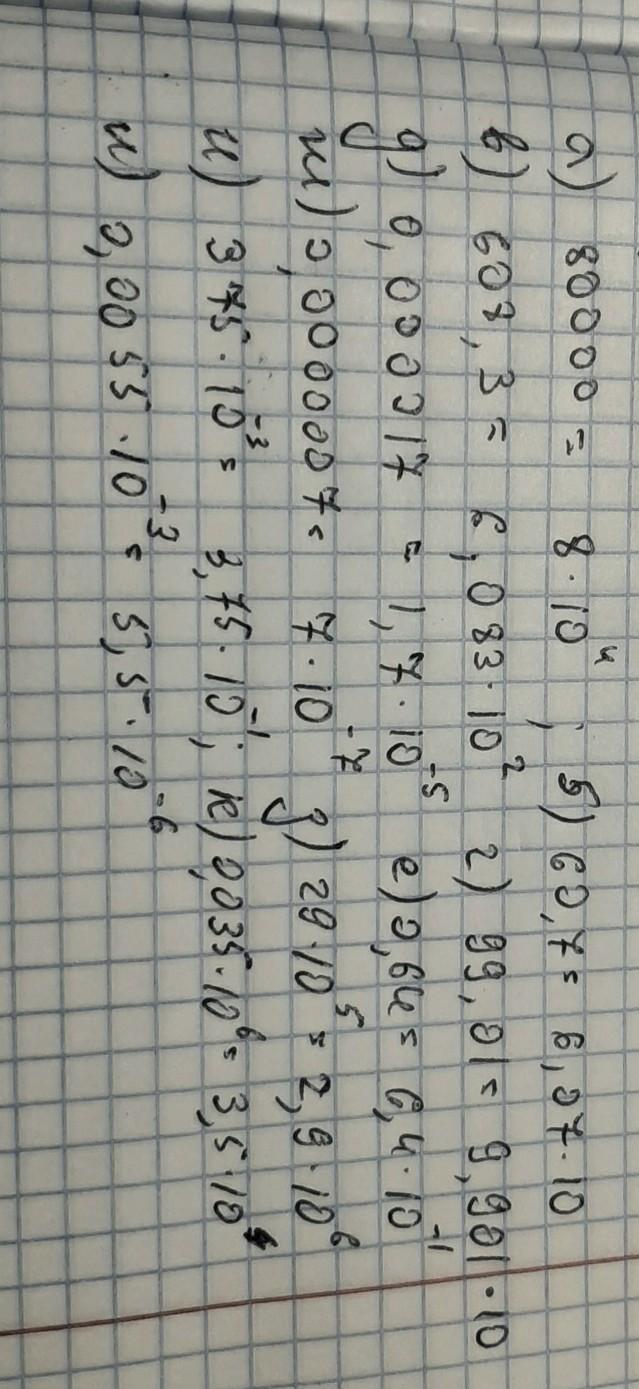 а) 80000 = 8·10⁴ ; б) 60,7 = 6,07·10
в) 608,3 = 6,083·10² г) 99,01 = 9,901·10
д) 0,000017 = 1,7·10⁻⁵ е) 0,64 = 6,4·10⁻¹
ж) 0,0000007 = 7·10⁻⁷ з) 29·10⁵ = 2,9·10⁶
и) 375·10⁻³ = 3,75·10⁻¹; к) 0,035·10⁶ = 3,5·10⁴
л) 0,0055·10⁻³ = 5,5·10⁻⁶